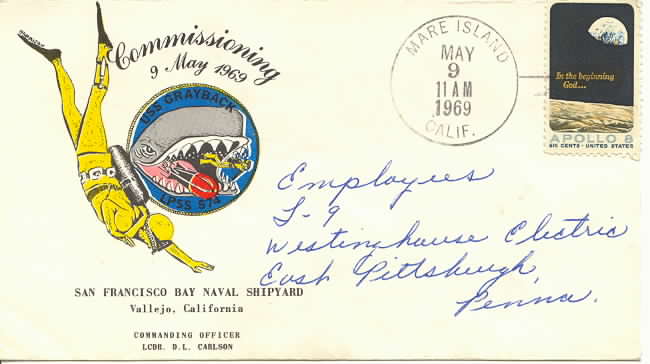 Commissioning
9 May 1969
USS GRAYBACK
LPSS 574
MARE ISLAND
MAY
9
11 AM
1969
CALIF.
In the beginning
God...
APOLLO 8
SIX CENTS · UNITED STATES
Employees
L-9
Westinghouse Electric
East Pittsburgh,
Penna.
SAN FRANCISCO BAY NAVAL SHIPYARD
Vallejo, California
COMMANDING OFFICER
LCDR. D.L. CARLSON